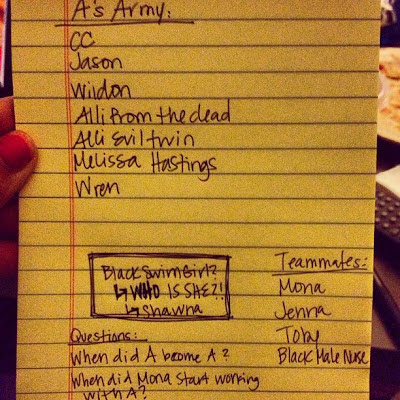 A's Army:
CC
Jason
Wildon
Alli from the dead
Alli Evil twin
Melissa Hastings
Wren
Black Swim Girl?
↳ WHO IS SHE?!
↳ Shawna
Teammates:
Mona
Jenna
Toby
Black Male Nuse
Questions:
When did A become A?
When did Mona start working
with A?